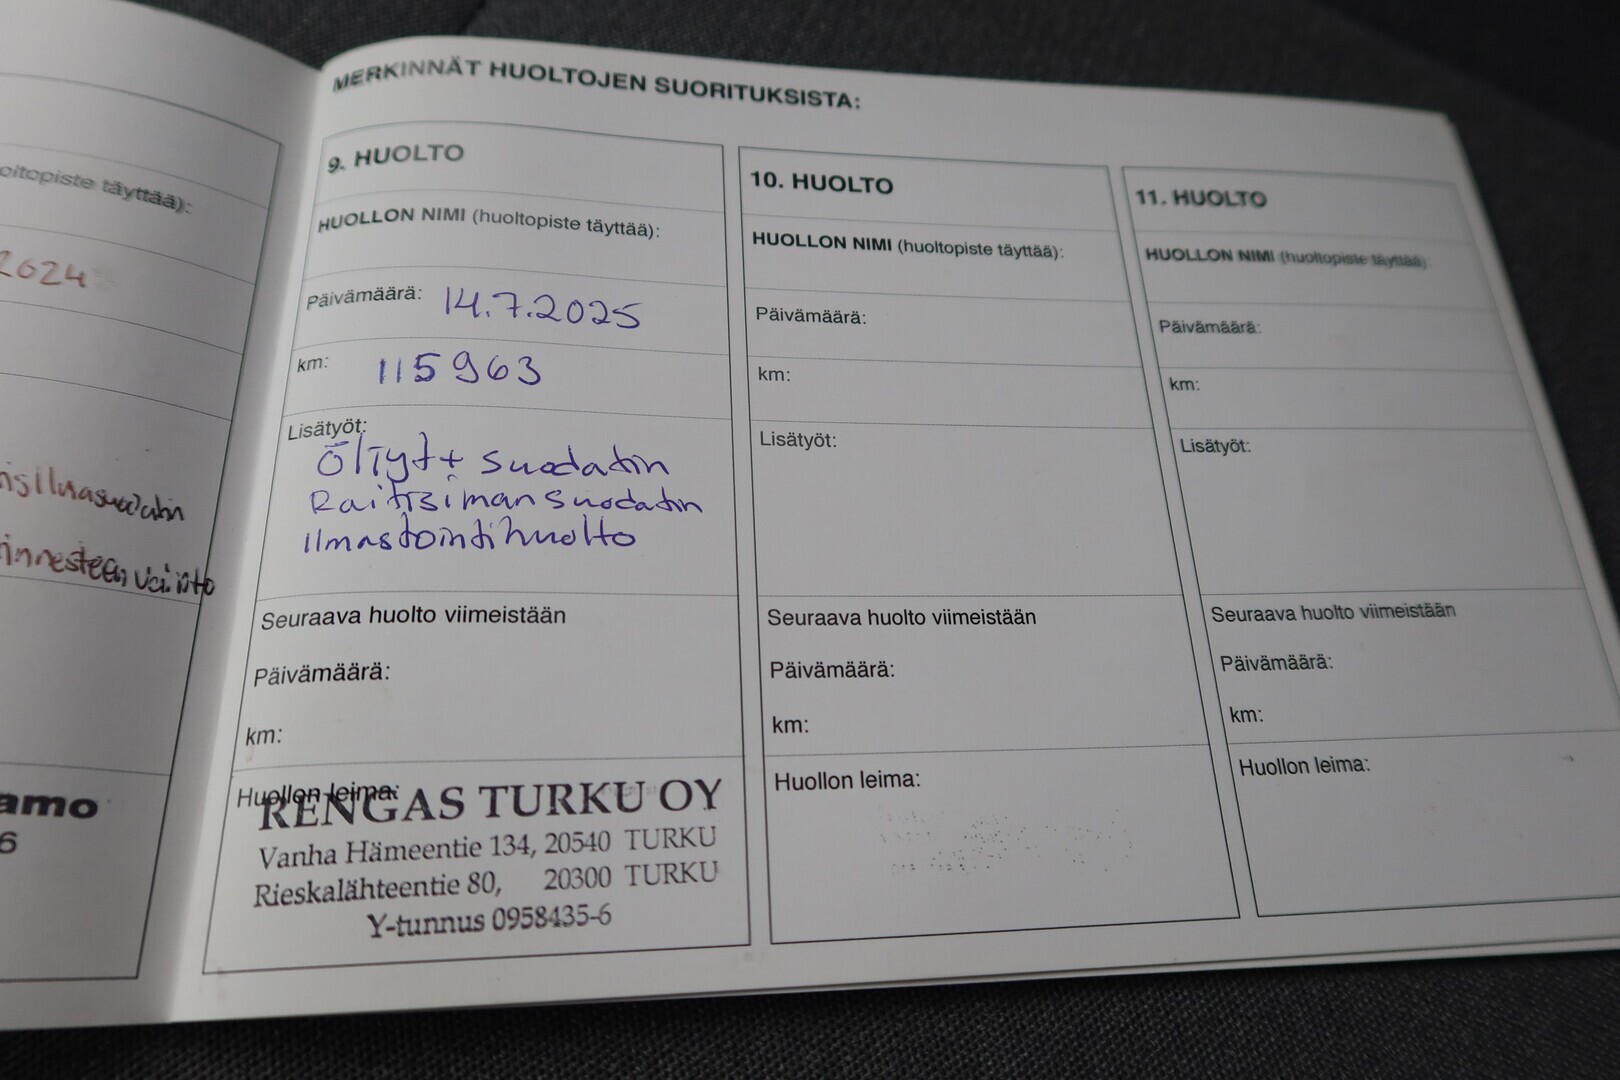 oltopiste täyttää):
2024
amo
6
MERKINNÄT HUOLTOJEN SUORITUKSISTA:
9. HUOLTO
HUOLLON NIMI (huoltopiste täyttää):
Päivämäärä: 14.7.2025
km: 115963
Lisätyöt:
Öljyt + suodatin
Raitisilman suodatin
Ilmastointihuolto
Seuraava huolto viimeistään
Päivämäärä:
km:
Huollon leima:
RENGAS TURKU OY
Vanha Hämeentie 134, 20540 TURKU
Rieskalähteentie 80, 20300 TURKU
Y-tunnus 0958435-6
10. HUOLTO
HUOLLON NIMI (huoltopiste täyttää):
Päivämäärä:
km:
Lisätyöt:
Seuraava huolto viimeistään
Päivämäärä:
km:
Huollon leima:
11. HUOLTO
HUOLLON NIMI (huoltopiste täyttää):
Päivämäärä:
km:
Lisätyöt:
Seuraava huolto viimeistään
Päivämäärä:
km:
Huollon leima: